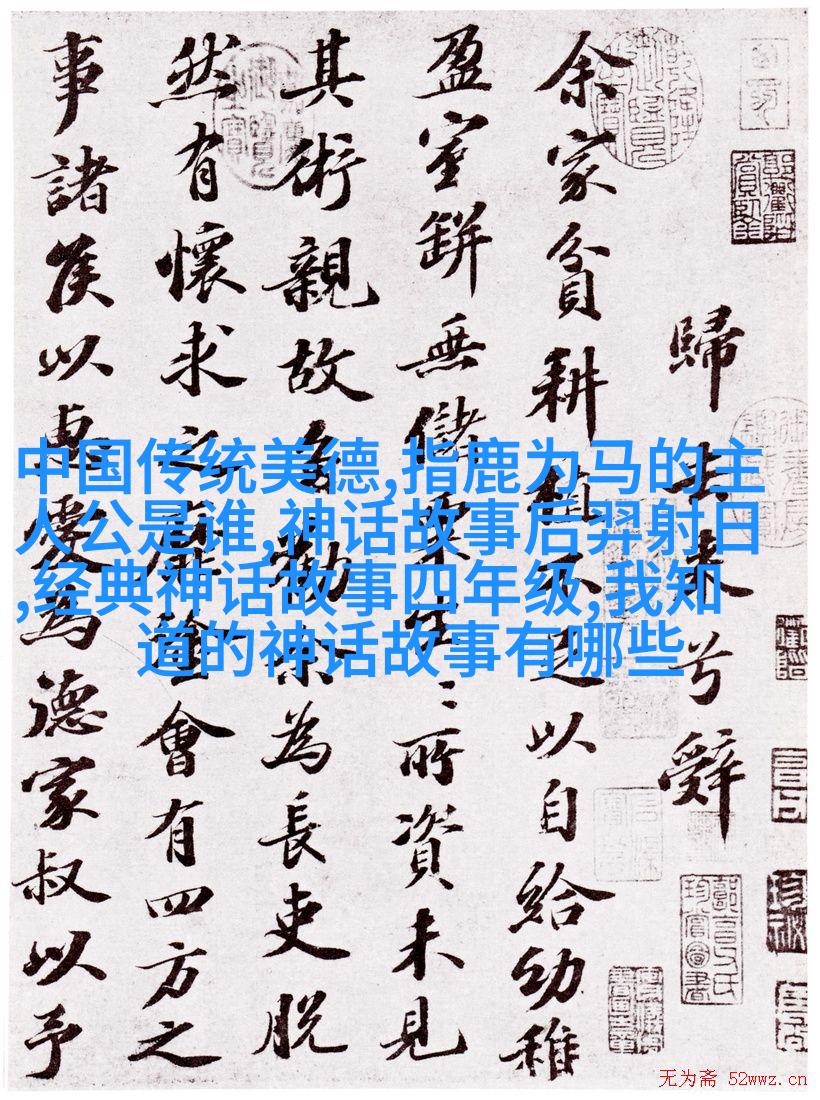 歸去来兮辭
余家貧耕植不足以自給幼稚
盈室缾無儲粟生〻所資未見
其術親故多勸余為長吏脫
然有懷求之靡途會有四方之
事諸侯以惠愛為德家叔以予
中国传统美德,指鹿为马的主
人公是谁,神话故事后羿射日
,经典神话故事四年级,我知
道的神话故事有哪些
无为斋 52wwz.cn